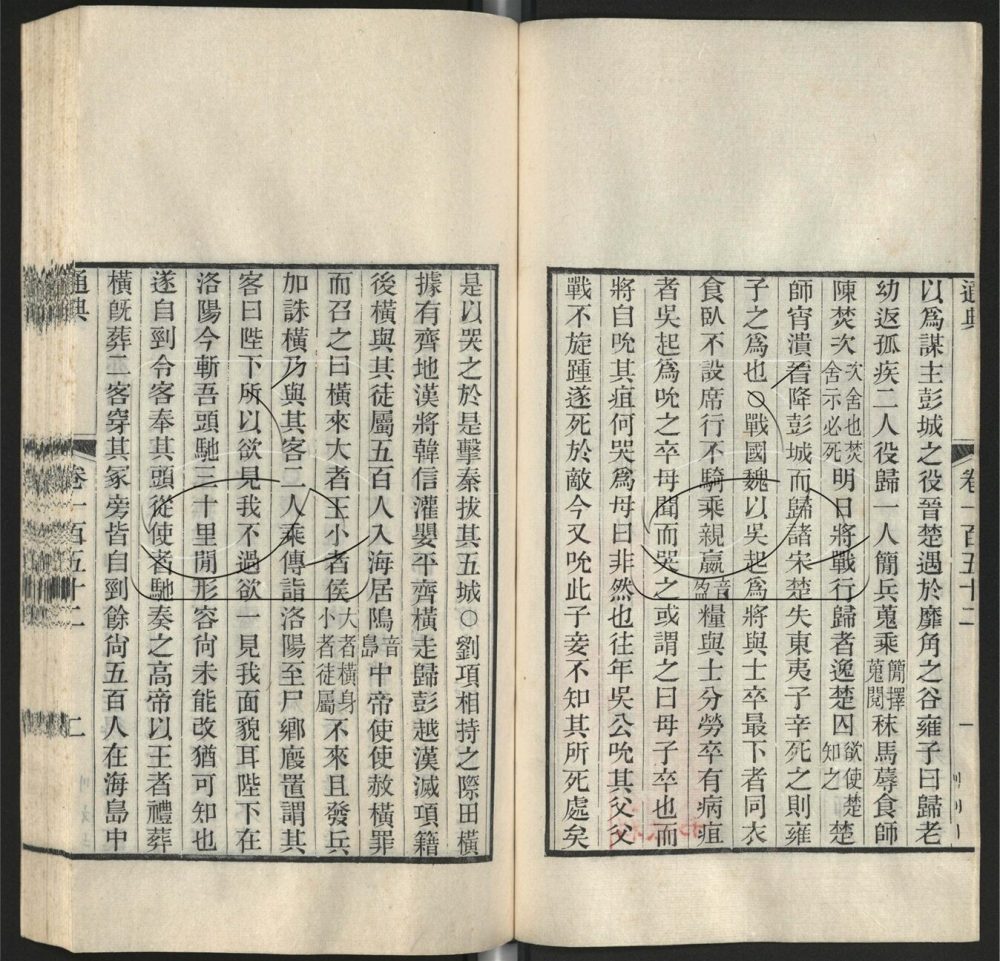 通典
卷一百五十二
一
以爲謀主彭城之役晉楚遇於靡角之谷雍子曰歸老
幼返孤疾二人役歸一人簡兵蒐乘簡擇蒐閱秣馬蓐食師
陳焚次次舍也焚舍示必死明日將戰行歸者逸楚囚欲使楚知之楚
師宵潰晉降彭城而歸諸宋楚失東夷子辛死之則雍
子之爲也○戰國魏以吳起爲將與士卒最下者同衣
食臥不設席行不騎乘親贏音盈糧與士分勞卒有病疽
者吳起爲吮之卒母聞而哭之或謂之曰母子卒也而
將自吮其疽何哭爲母曰非然也往年吳公吮其父父
戰不旋踵遂死於敵今又吮此子妾不知其所死處矣
是以哭之於是擊秦拔其五城○劉項相持之際田橫
據有齊地漢將韓信灌嬰平齊橫走歸彭越漢滅項籍
後橫與其徒屬五百人入海居隝音島中帝使使赦橫罪
而召之曰橫來大者王小者侯大者橫身小者徒屬不來且發兵
加誅橫乃與其客二人乘傳詣洛陽至尸鄉廄置謂其
客曰陛下所以欲見我不過欲一見我面貌耳陛下在
洛陽今斬吾頭馳三十里閒形容尙未能改猶可知也
遂自剄令客奉其頭從使者馳奏之高帝以王者禮葬
橫旣葬二客穿其冢旁皆自剄餘尙五百人在海島中
通典
卷一百五十二
二